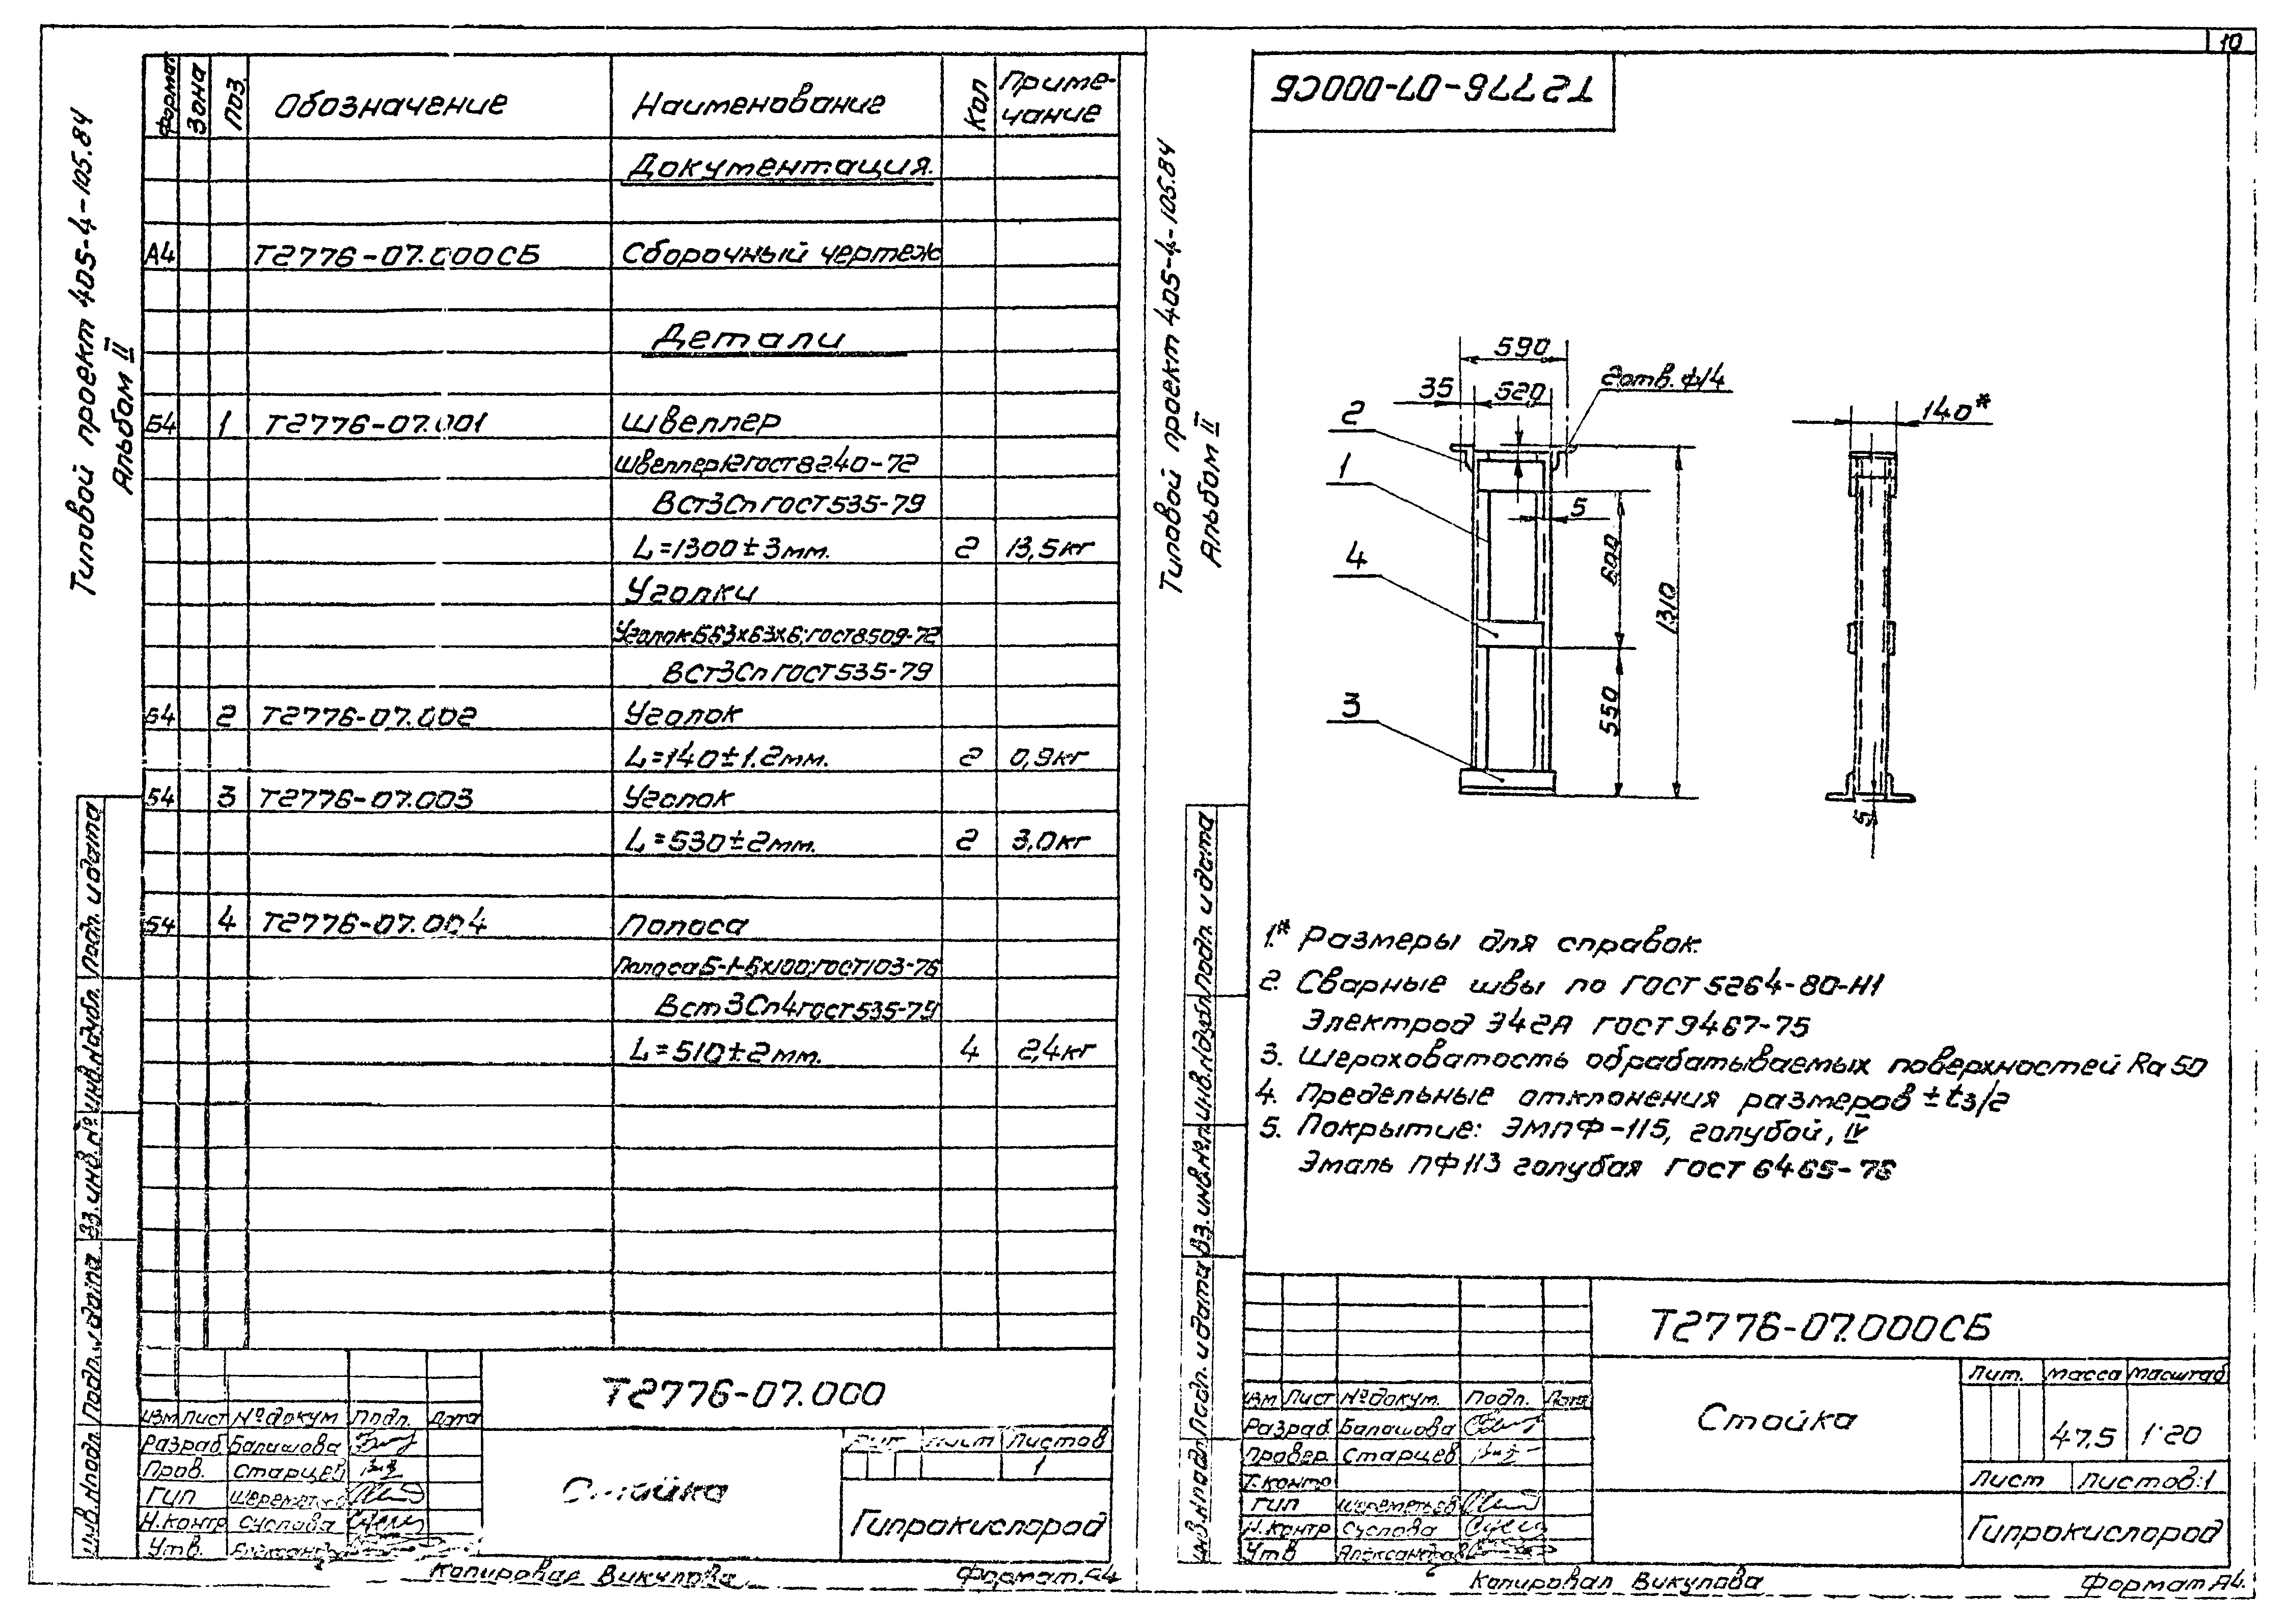 10
Типовой проект 405-4-105.84
Альбом II
Формат
Зона
Поз.
Обозначение
Наименование
Кол
Приме-
чание
Документация.
А4 Т2776-07.000СБ Сборочный чертеж
Детали
Б4 1 Т2776-07.001 Швеллер
Швеллер 12 ГОСТ 8240-72
ВСт3Сп ГОСТ 535-79
L=1300±3мм. 2 13,5кг
Уголки
Уголок Б63х63х6; ГОСТ 8509-72
ВСт3Сп ГОСТ 535-79
Б4 2 Т2776-07.002 Уголок
L=140±1.2мм. 2 0,9кг
Б4 3 Т2776-07.003 Уголок
L=530±2мм. 2 3,0кг
Б4 4 Т2776-07.004 Полоса
Полоса Б-1-6х100; ГОСТ 103-76
Вст3Сп4 ГОСТ 535-79
L=510±2мм. 4 2,4кг
Подп. и дата
Инв.№дубл.
Вз.инв.№
Подп. и дата
Инв.№подл.
Т2776-07.000
Изм Лист №докум Подп. Дата
Разраб Балашова
Пров. Старцев
ГИП Шереметьев
Н.контр Суслова
Утв. Александров
Стойка
Лит Лист Листов
1
Гипрокислород
Копировал Викулова
Формат А4
Типовой проект 405-4-105.84
Альбом II
Т2776-07-000СБ
590
35
520
2отв. ф14
140*
2
1
4
3
5
600
1310
550
5
1.* Размеры для справок.
2. Сварные швы по ГОСТ 5264-80-Н1
Электрод Э42А ГОСТ 9467-75
3. Шероховатость обрабатываемых поверхностей Ra 50
4. Предельные отклонения размеров ±t3/2
5. Покрытие: ЭМПФ-115, голубой, IV
Эмаль ПФ113 голубая ГОСТ 6465-76
Подп. и дата
Инв.№дубл.
Вз.инв.№
Подп. и дата
Инв.№подл.
Т2776-07.000СБ
Изм Лист №докум. Подп. Дата
Разраб. Балашова
Провер. Старцев
Т.контр
ГИП Шереметьев
Н.контр Суслова
Утв Александров
Стойка
Лит. Масса Масштаб
47.5 1:20
Лист Листов:1
Гипрокислород
Копировал Викулова
Формат А4.